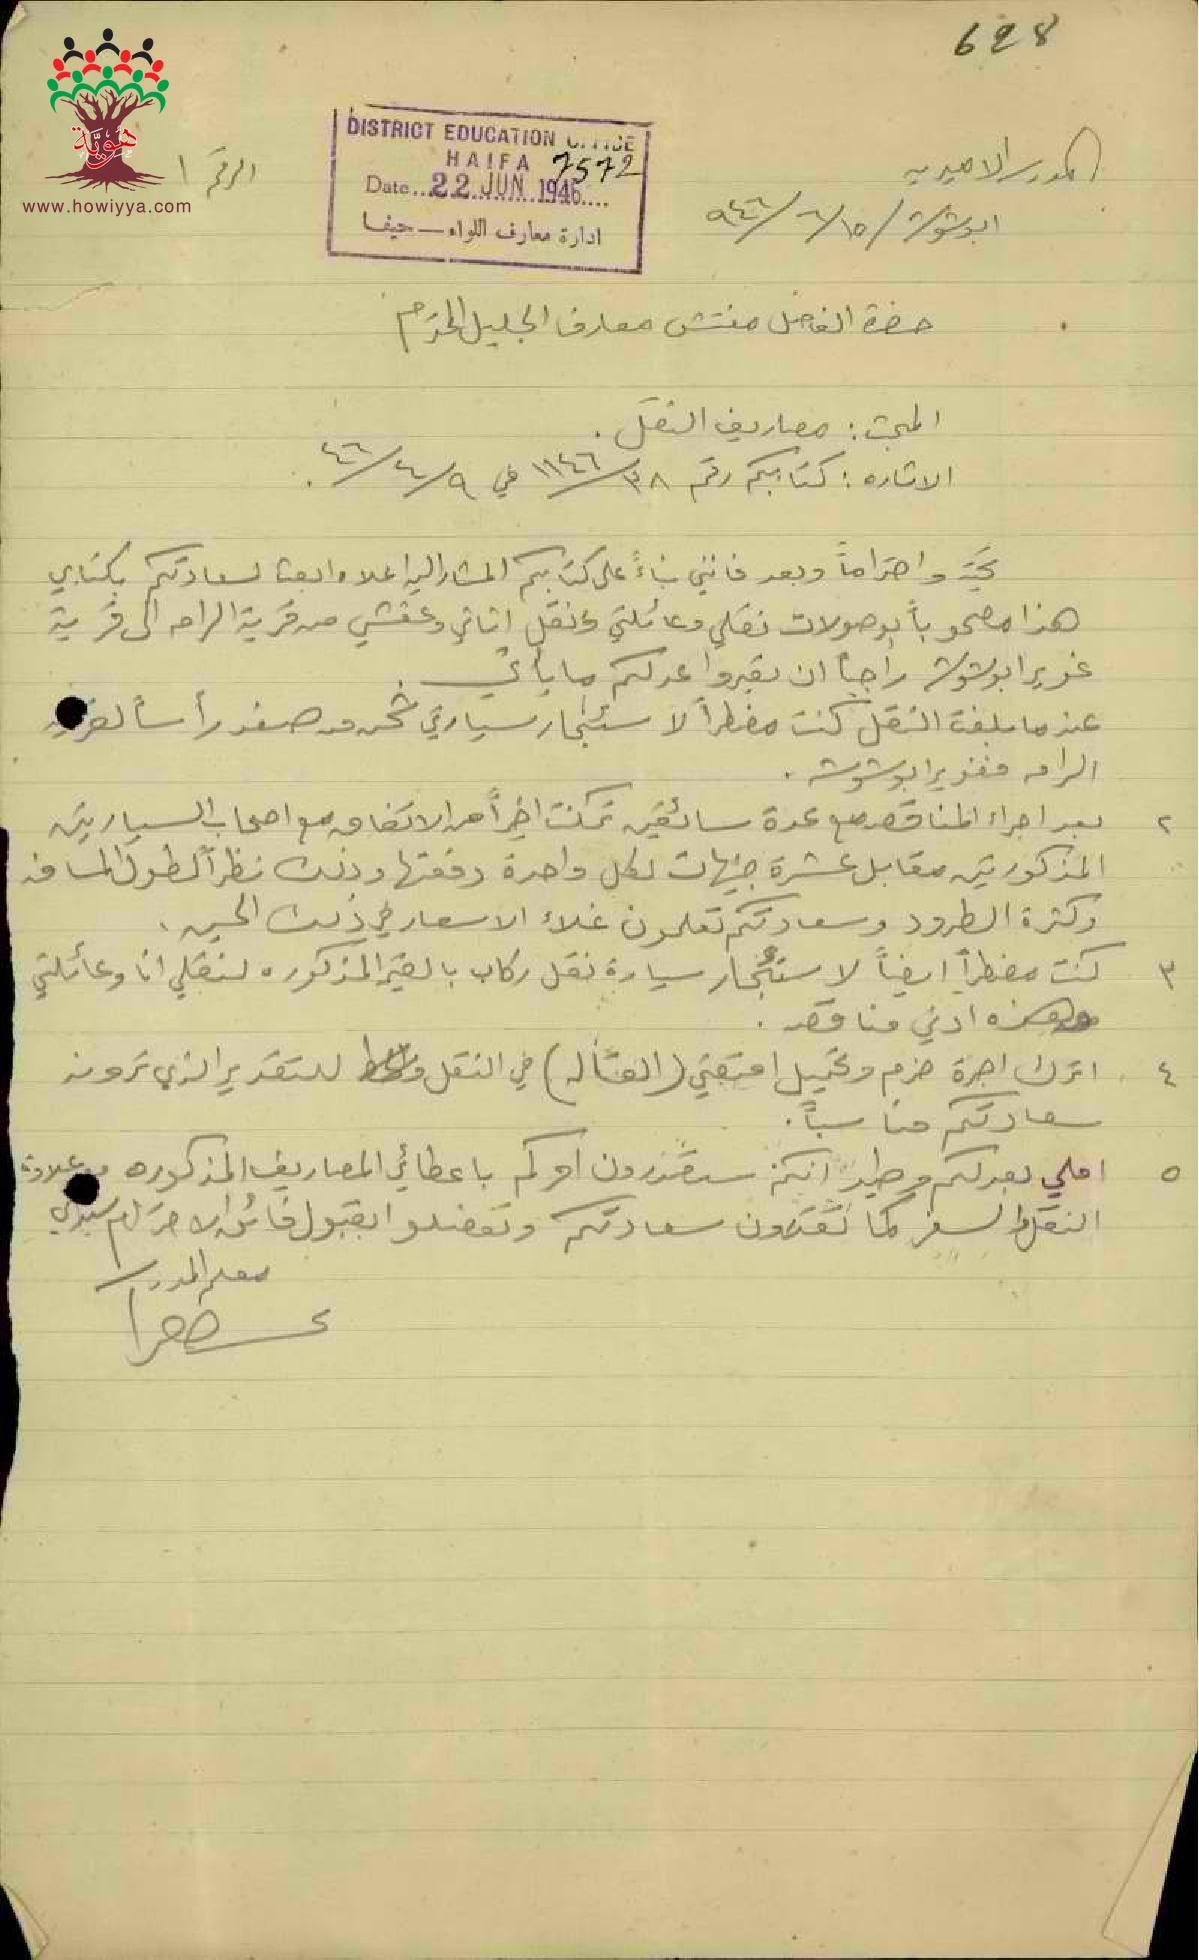 628
هوية
www.howiyya.com
DISTRICT EDUCATION OFFICE
HAIFA 7572
Date...22 JUN 1946....
ادارة معارف اللواء — حيفا
الرقم ١
المدرسة الاميريه
ابوشوشة / ١٥/٦/٩٤٦
حضرة الفاضل مفتش معارف الجليل المحترم
المبحث : مصاريف النقل .
الاشاره : كتابكم رقم في ٩/٤/٤٦ .
تحية واحتراماً وبعد فانني بناءً على كتابكم المشار اليه اعلاه ابعث لسعادتكم بكتابي
هذا مصحوباً بوصولات نقلي وعائلتي ونقل اثاثي وعفشي من قرية الرامه الى قرية
غوير ابوشوشة راجياً ان يقرروا عدلكم ما يأتي
عندما بلغت النقل كنت مضطراً لاستئجار سيارتي شحن من صفد رأساً لقرية
الرامه فغوير ابوشوشه .
٢ بعد اجراء المناقصه مع عدة سائقين تمكنت اخيراً من الاتفاق مع اصحاب السيارتين
المذكورتين مقابل عشرة جنيهات لكل واحدة دفعتها وذلك نظراً لطول المسافه
وكثرة الطرود وسعادتكم تعلمون غلاء الاسعار في ذلك الحين .
٣ كنت مضطراً ايضاً لاستئجار سيارة نقل ركاب بالقيم المذكوره لنقلي انا وعائلتي
وهذه ادنى مناقصه .
٤ اترك اجرة حزم وتحميل امتعتي (العتاله) في النقل للتقدير الذي ترونه
سعادتكم مناسباً .
٥ املي بعدلكم وطيد انكم ستصدرون امركم باعطائي المصاريف المذكوره مع علاوة
النقل والسفر كما تقترون سعادتكم وتفضلوا بقبول فائق الاحترام سيدي
معلم المدرسة